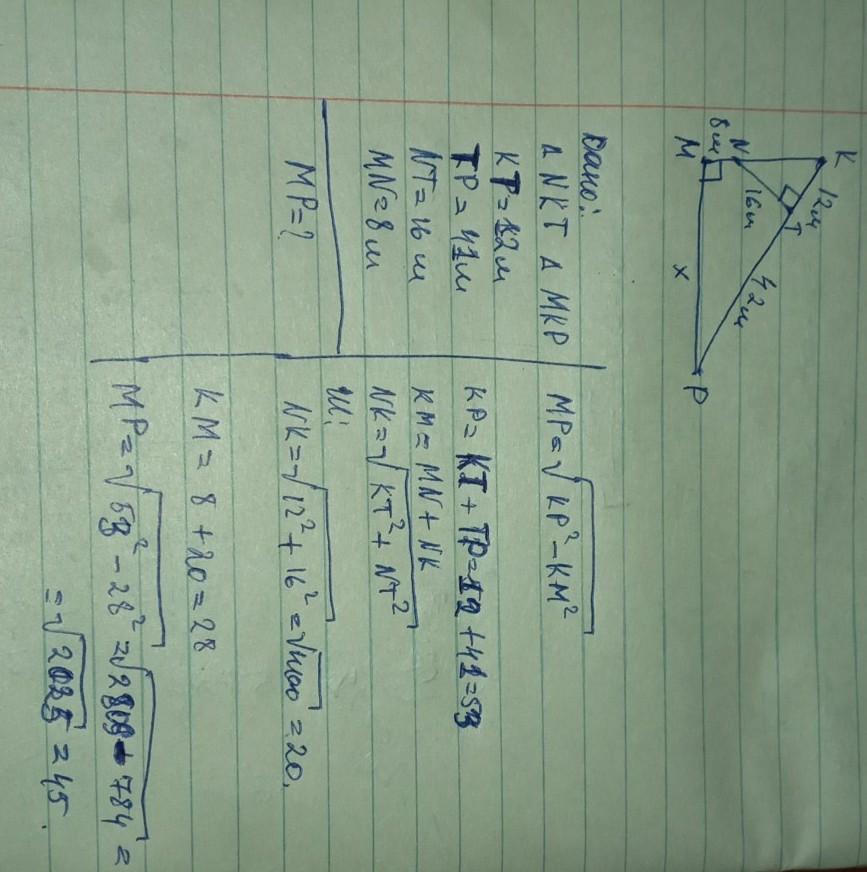 K
12м
N
T
16м
42м
8м
M
x
P
Дано:
Δ NKT Δ MKP
KT=12м
TP=41м
NT=16м
MN=8м
MP=?
MP=√KP²-KM²
KP=KT+TP=12+41=53
KM=MN+NK
NK=√KT²+NT²
Ш:
NK=√12²+16²=√400=20.
KM=8+20=28
MP=√53²-28²=√2809-784=
=√2025=45.